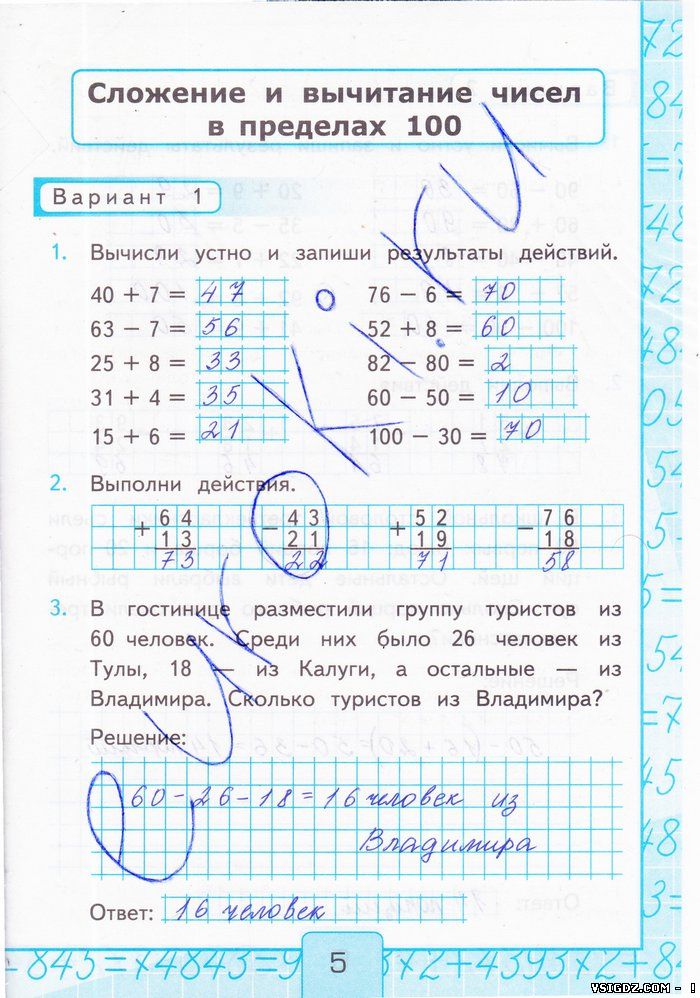 Сложение и вычитание чисел
в пределах 100
Вариант 1
1. Вычисли устно и запиши результаты действий.
40 + 7 = 47 76 − 6 = 70
63 − 7 = 56 52 + 8 = 60
25 + 8 = 33 82 − 80 = 2
31 + 4 = 35 60 − 50 = 10
15 + 6 = 21 100 − 30 = 70
2. Выполни действия.
+ 64 − 43 + 52 − 76
13 21 19 18
73 22 71 58
3. В гостинице разместили группу туристов из
60 человек. Среди них было 26 человек из
Тулы, 18 — из Калуги, а остальные — из
Владимира. Сколько туристов из Владимира?
Решение:
60 − 26 − 18 = 16 человек из
Владимира
Ответ: 16 человек
5
VSIGDZ.COM - 1